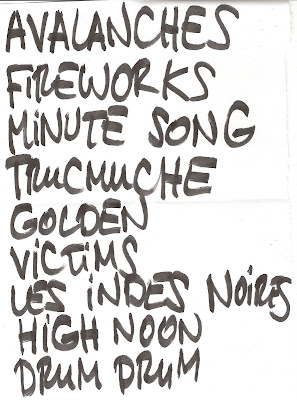 AVALANCHES
FIREWORKS
MINUTE SONG
TRUCMUCHE
GOLDEN
VICTIMS
LES INDES NOIRES
HIGH NOON
DRUM DRUM